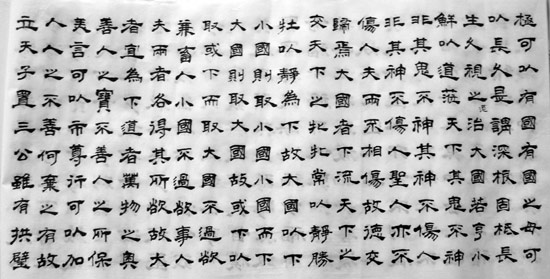 極可以有國有國之母可
以長久是謂深根固柢長
生久視之道治大國若烹小
鮮以道莅天下其鬼不神
非其鬼不神其神不傷人
非其神不傷人聖人亦不
傷人夫兩不相傷故德交
歸焉大國者下流天下之
交天下之牝牝常以靜勝
牡以靜為下故大國以下
小國則取小國小國而下
大國則取大國故或下以
取或下而取大國不過欲
兼畜人小國不過欲事人
夫兩者各得其所欲故大
者宜為下道者萬物之奧
善人之寶不善人之所保
美言可以市尊行可以加
人人之不善何棄之有故
立天子置三公雖有拱璧